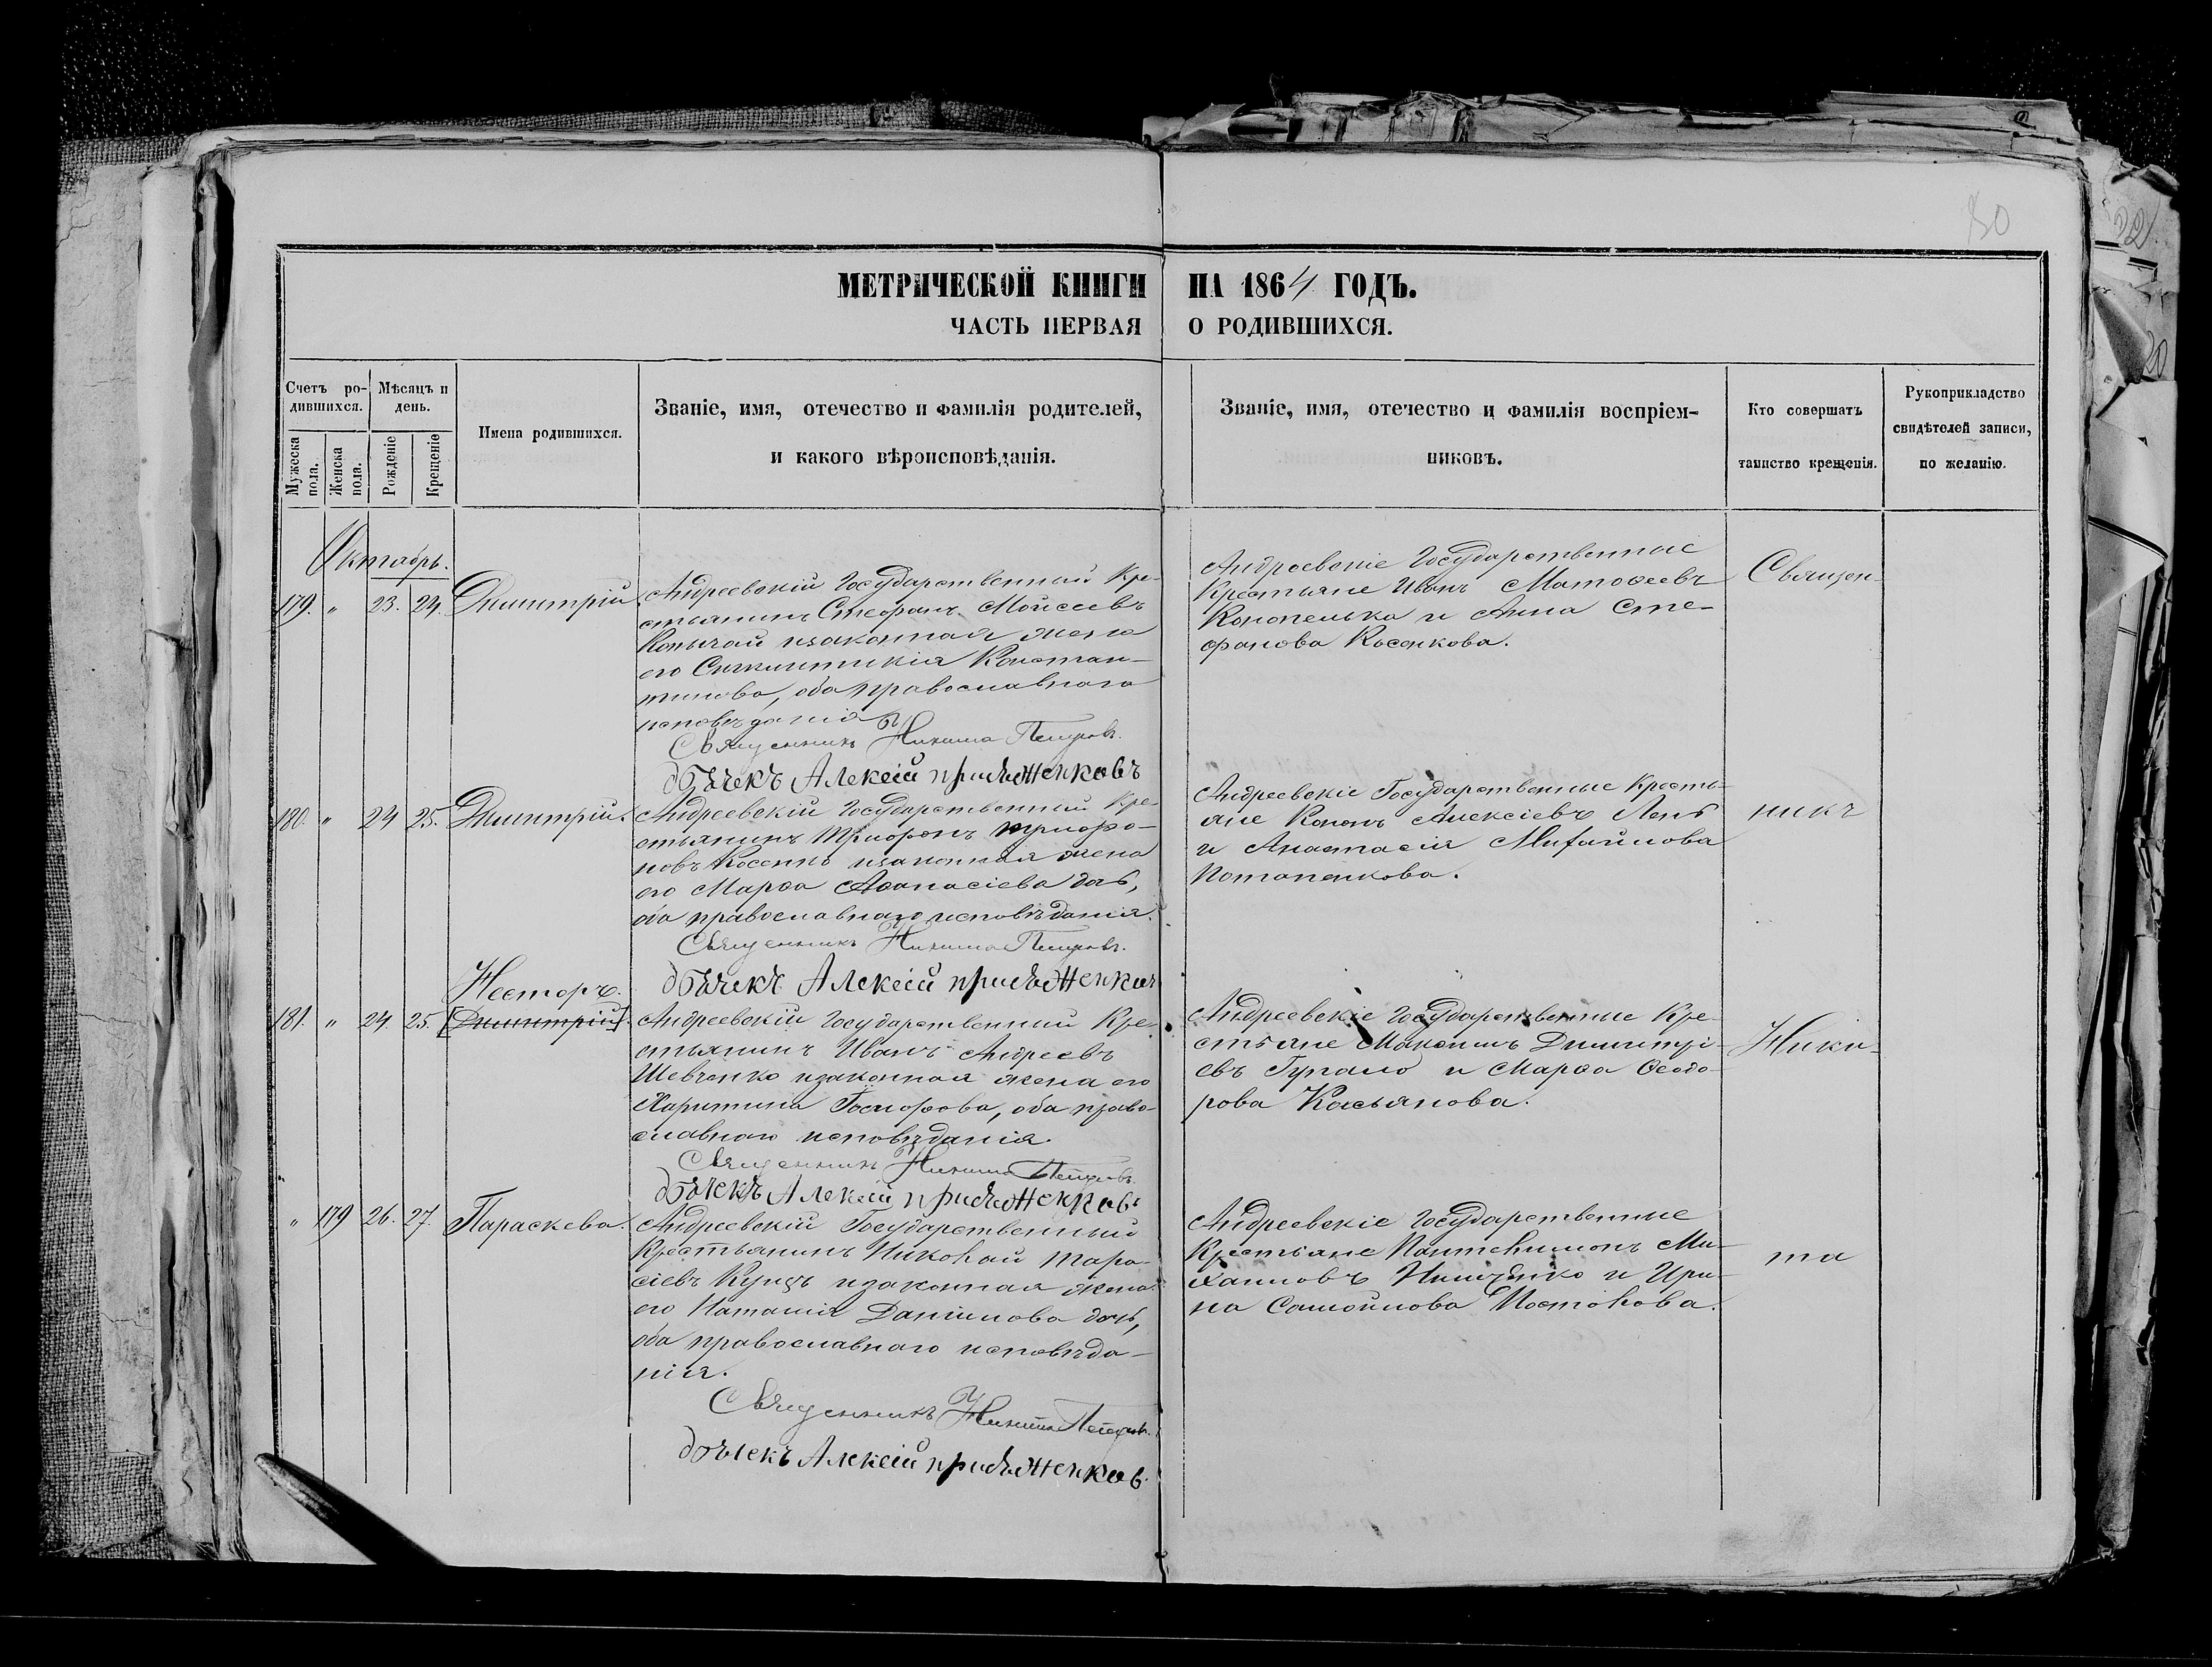 80
МЕТРИЧЕСКОЙ КНИГИ НА 1864 ГОДЪ.
ЧАСТЬ ПЕРВАЯ О РОДИВШИХСЯ.
Счетъ ро-
дившихся.
Мужеска пола.
Женска пола.
Мѣсяцъ и
день.
Рожденіе
Крещеніе
Имена родившихся.
Званіе, имя, отечество и фамилія родителей,
и какого вѣроисповѣданія.
Званіе, имя, отечество и фамилія воспріем-
никовъ.
Кто совершатъ
таинство крещенія.
Рукоприкладство
свидѣтелей записи,
по желанію.
Октябрь.
179. „ 23. 24. Димитрій.
Андреевскій Государственный Кре-
стьянинъ Стефанъ Моисеевъ
и законная жена
его Константи-
нова, оба православнаго
исповѣданія
Священникъ Никита Петровъ.
Алексій
Андреевскіе Государственные
Крестьяне Иванъ Матѳеевъ
Конопелька и Анна Сте-
фанова Косенкова.
Священ-
180. „ 24 25. Димитрій.
Андреевскій Государственный Кре-
стьянинъ Трифонъ Трифо-
новъ Косенко и законная жена
его Марѳа Аѳанасіева дочь,
оба православнаго исповѣданія.
Священникъ Никита Петровъ.
Алексій
Андреевскіе Государственные Кресть-
яне Кононъ Алексіевъ
и Анастасія Михаилова
Потапенкова.
никъ
Несторъ.
181. „ 24. 25. [Димитрій].
Андреевскій Государственный Кре-
стьянинъ Иванъ Андреевъ
Шевченко и законная жена его
Харитина оба право-
славнаго исповѣданія.
Священникъ Никита Петровъ.
Алексій
Андреевскіе Государственные Кре-
стьяне Максимъ Димитрі-
евъ и Марѳа Ѳеодо-
рова Касьянова.
Ники-
„ 179 26. 27. Параскева.
Андреевскій Государственный
Крестьянинъ Николай Тара-
сіевъ и законная жена
его Наталія Даніилова дочь,
оба православнаго исповѣда-
нія.
Священникъ Никита Петровъ.
Алексій
Андреевскіе Государственные
Крестьяне Пантелимонъ Ми-
хаиловъ и Ири-
на Самойлова
та